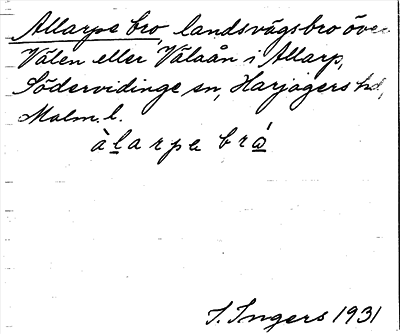 Allarpe bro, landsvägsbro över
Välen eller Välaån i Allarp,
Södervidinge sn, Harjagers hd,
Malm. l.
àlarpe brá
I. Ingers 1931